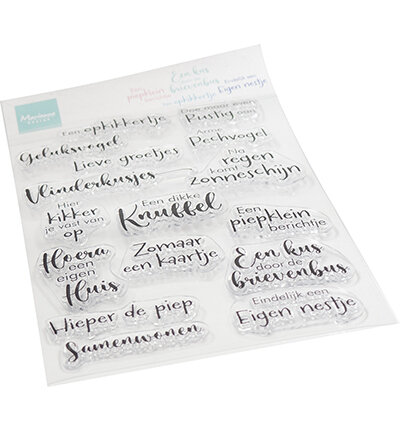 Marianne
DESIGN
Een kus
door de
brievenbus
Een
piepklein
berichtje
Eindelijk een
Eigen nestje
Een opkikkertje
Een opkikkertje
Doe maar even
Rustig aan
Geluksvogel
Lieve groetjes
Arme
Pechvogel
Vlinderkusjes
Na
regen
komt
zonneschijn
Hier
kikker
je vast van
op
Een dikke
Knuffel
Een
piepklein
berichtje
Hoera
een
eigen
Huis
Zomaar
een kaartje
Een kus
door de
brievenbus
Hieper de piep
Samenwonen
Eindelijk een
Eigen nestje